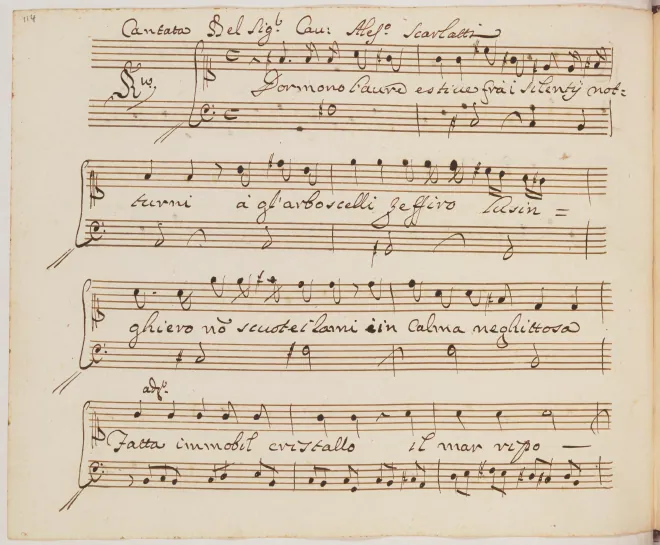 114
Cantata Del Sig.r Cau: Aless.o Scarlatti
R.vo
Dormono l'aure estiue frà i Silentÿ not=
turni à gl'arboscelli Zeffiro lusin=
ghiero nõ scuote i rami in Calma neghittosa
ad.o
Fatta immobil cristallo il mar ripo —